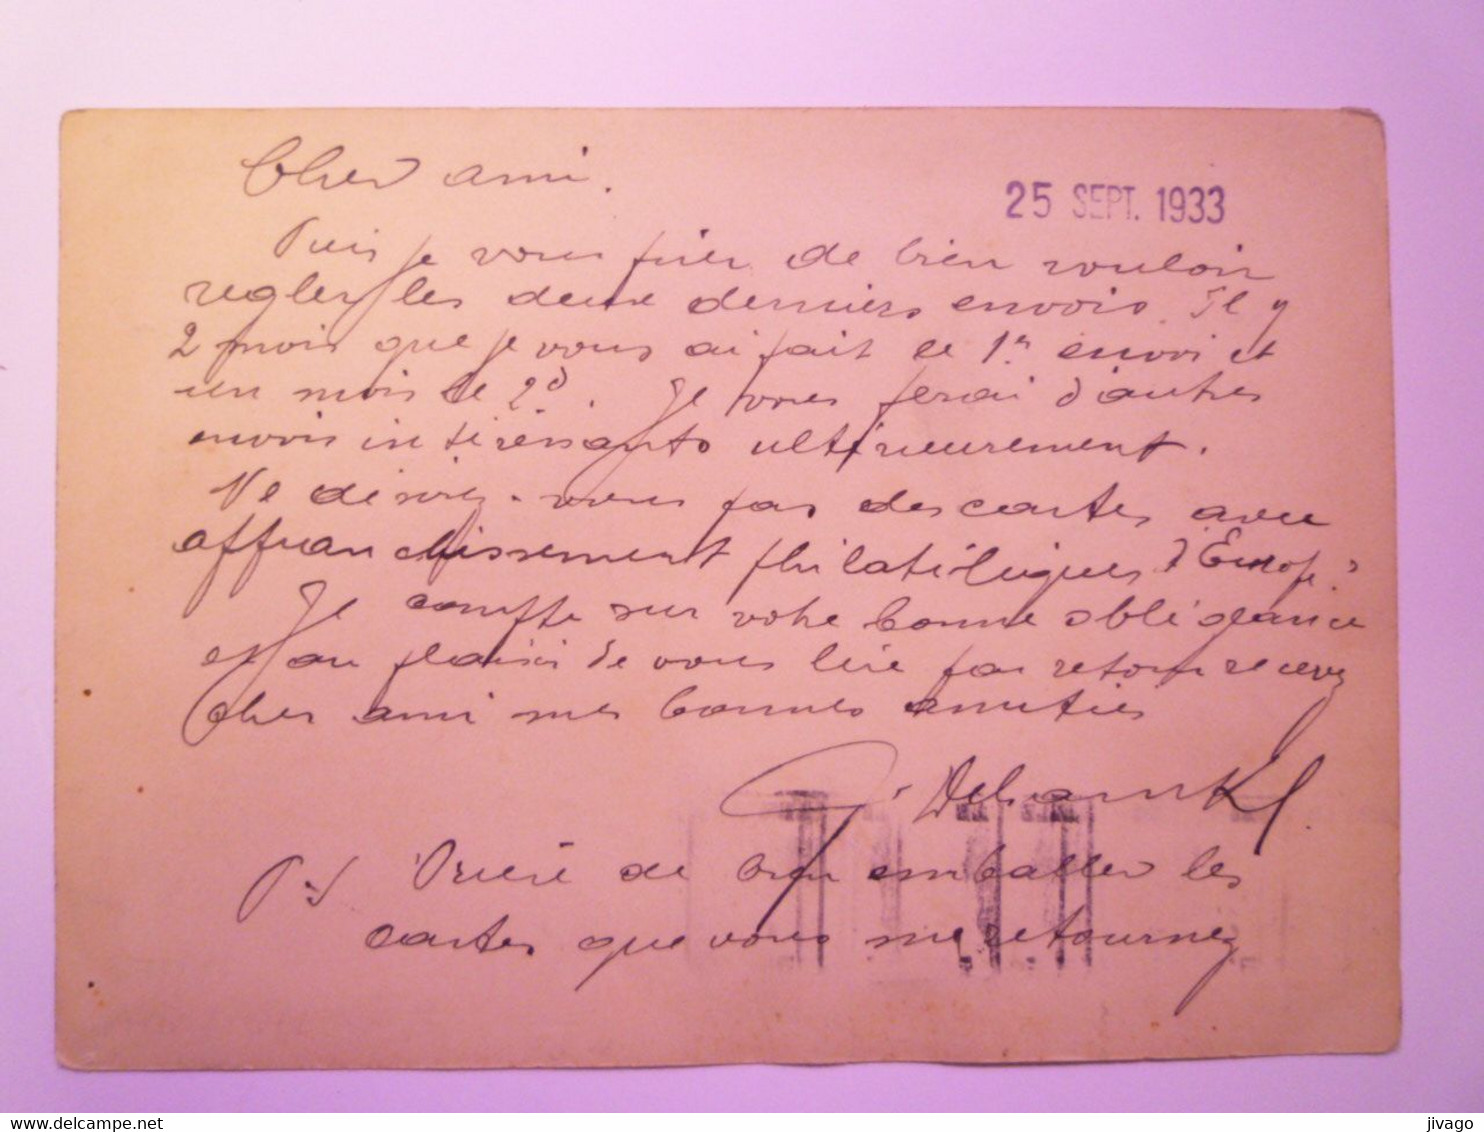 Cher ami.
25 SEPT. 1933
Puis je vous prier de bien vouloir
regler les deux derniers envois. Il y
2 mois que je vous ai fait le 1er envoi et
un mois le 2d. Je vous ferai d'autres
envois intéressants ultérieurement.
Ne désirez-vous pas des cartes avec
affranchissement philatéliques d'Europe?
Je compte sur votre bonne obligeance
et au plaisir de vous lire par retour recevez
Cher ami mes bonnes amitiés
PS Prière de bien emballer les
cartes que vous me retournez
www.delcampe.net
jivago